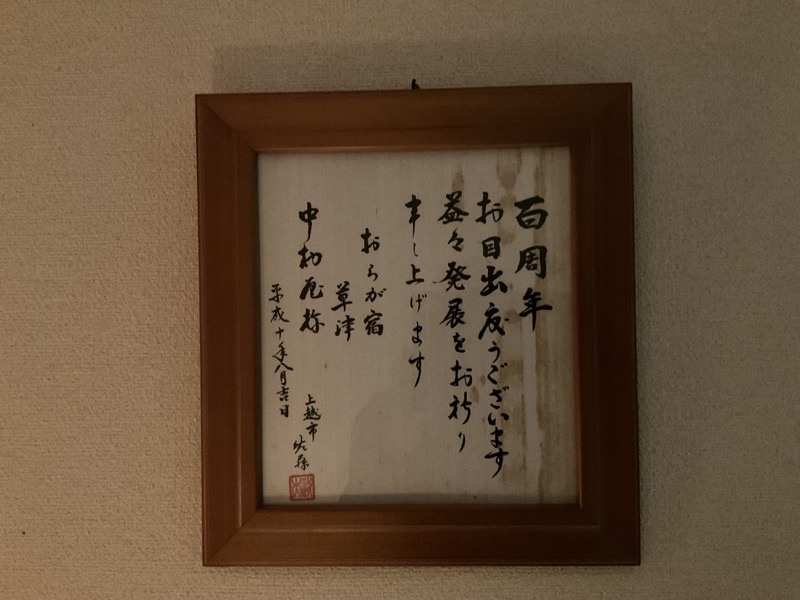 百周年
お目出度うございます
益々発展をお祈り
申し上げます
おらが宿
草津
中村屋様
平成十年八月吉日
上越市
佐藤